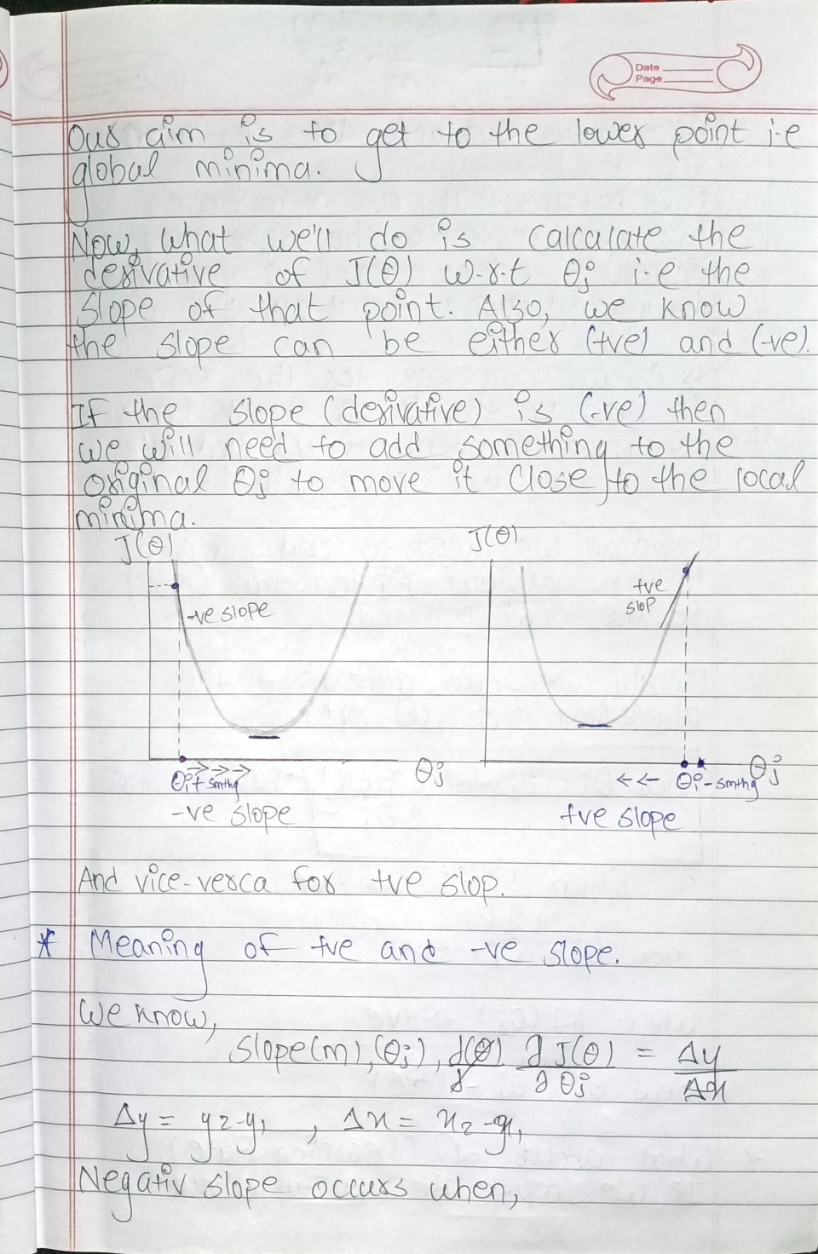 Date
Page
Our aim is to get to the lower point i.e
global minima.
Now, what we'll do is calculate the
derivative of J(θ) w.r.t θj i.e the
slope of that point. Also, we know
the slope can be either (+ve) and (-ve).
If the slope (derivative) is (-ve) then
we will need to add something to the
original θj to move it close to the local
minima.
J(θ)
-ve slope
θj + smthg
θj
-ve slope
J(θ)
+ve
slop
θj - smthg
θj
+ve slope
And vice-verca for +ve slop.
* Meaning of +ve and -ve slope.
We know,
Slope(m), (θj), ∂J(θ)/∂θj = Δy/Δx
Δy = y2-y1 , Δx = x2-x1,
Negativ slope occurs when,